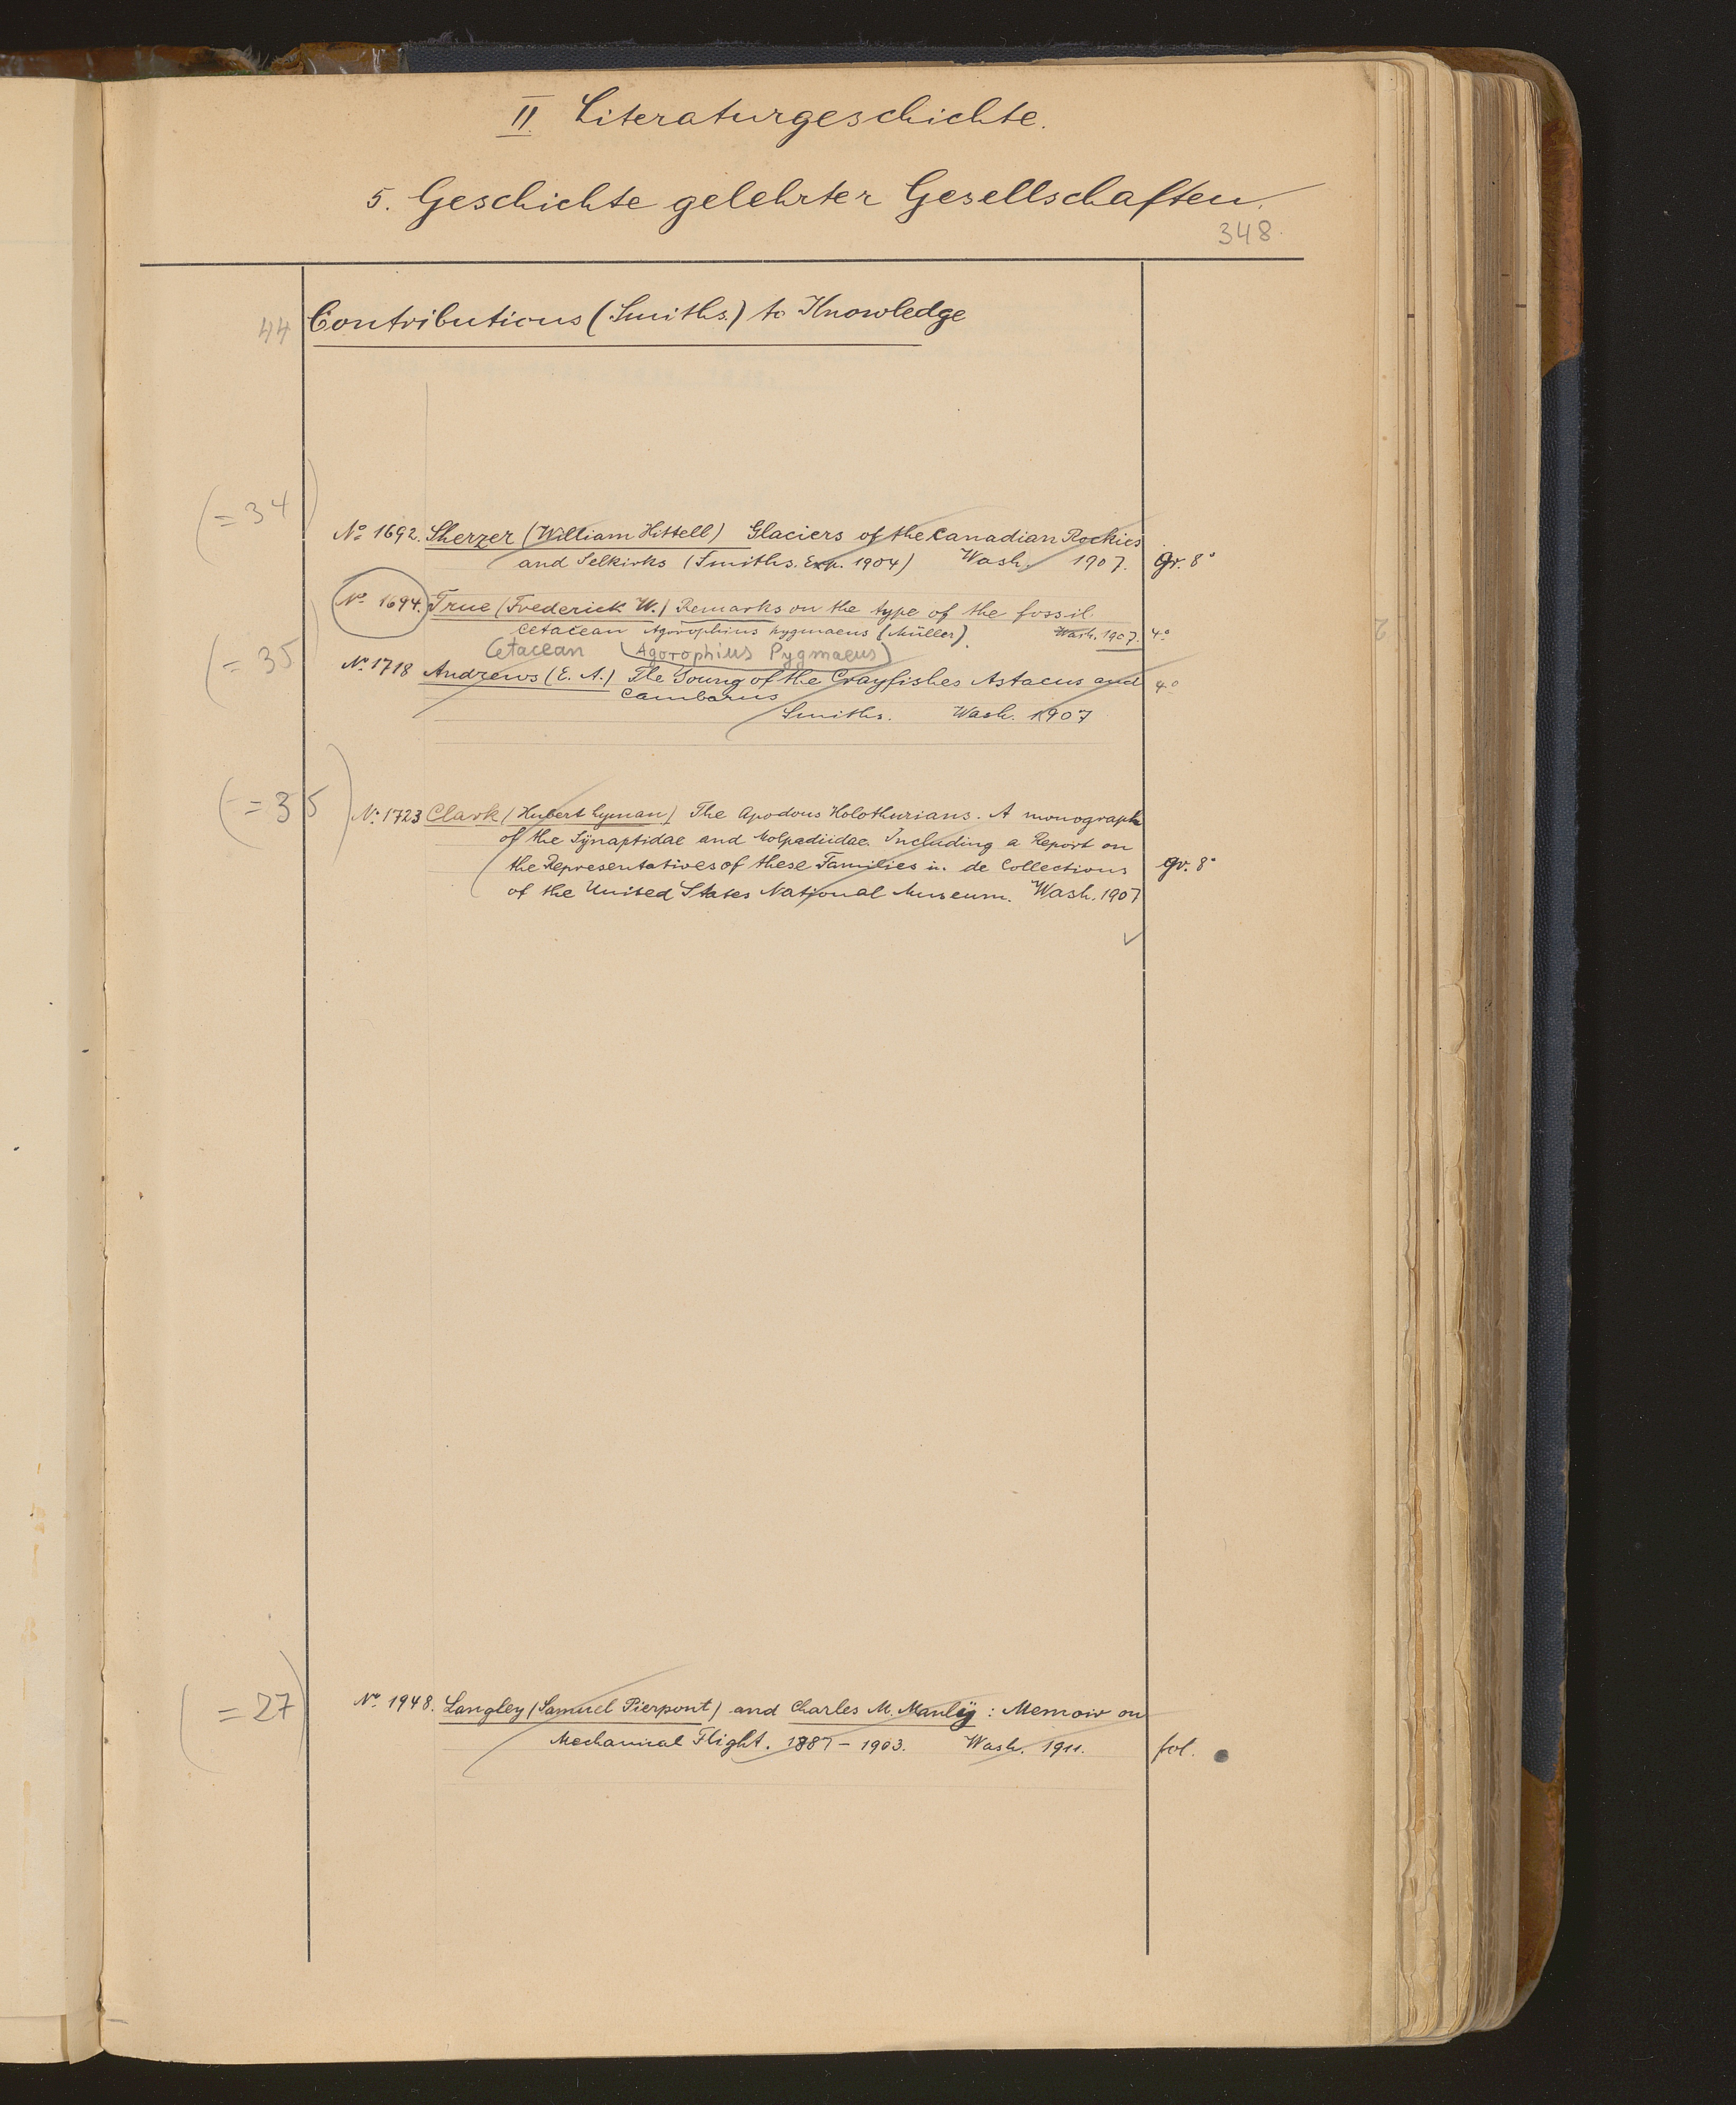 II. Literaturgeschichte.
5. Geschichte gelehrter Gesellschaften.
348.
44 Contributions (Smiths.) to Knowledge
(= 34)
No 1692. Sherzer (William Hittell) Glaciers of the Canadian Rockies
and Selkirks (Smiths. Exp. 1904) Wash. 1907. gr. 8°
No 1694. True (Frederick W.) Remarks on the type of the fossil
cetacean Agorophius pygmaeus (Müller). Wash. 1907. 4°
(= 35) Cetacean (Agorophius Pygmaeus)
No 1718 Andrews (E. A.) The Young of the Crayfishes Astacus and 4°
Cambarus
Smiths. Wash. 1907
(= 35) No 1723 Clark (Hubert Lyman) The Apodous Holothurians. A monograph
of the Synaptidae and Molpadiidae. Including a Report on
the Representatives of these Families in de Collections gr. 8°
of the United States National Museum. Wash. 1907
(= 27) No 1948. Langley (Samuel Pierpont) and Charles M. Manlÿ : Memoir on
Mechanical Flight. 1887 – 1903. Wash. 1911. fol.